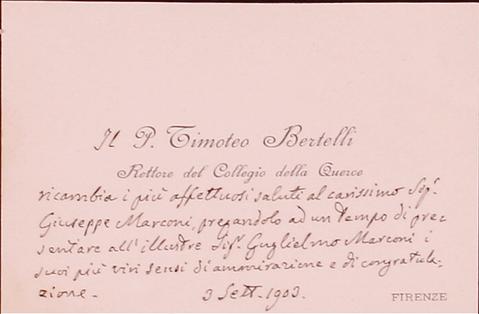 Il P. Timoteo Bertelli
Rettore del Collegio della Querce
ricambia i più affettuosi saluti al carissimo Sigr.
Giuseppe Marconi, pregandolo ad un tempo di pre
sentare all'illustre Sigr. Guglielmo Marconi i
suoi più vivi sensi di ammirazione e di congratula-
zione.-
3 Sett. 1903.
FIRENZE